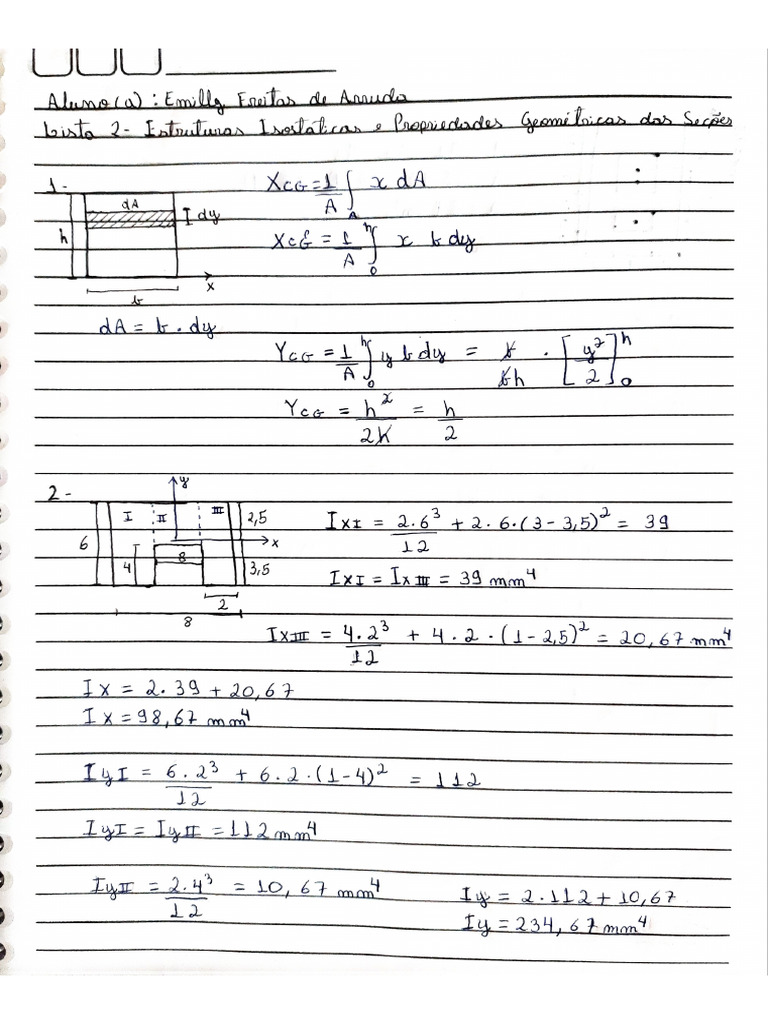 Aluno(a): Emilly Freitas de Arruda
Lista 2- Estruturas Isostáticas e Propriedades Geométricas das Seções
1-
dA
dy
h
x
b
XCG = 1/A ∫A x dA
XCG = 1/A ∫0^h x b dy
dA = b . dy
YCG = 1/A ∫0^h y b dy = b/bh . [y²/2]0^h
YCG = h²/2h = h/2
2-
y
I II III 2,5
6 x
8
4 3,5
2
8
IxI = 2.6³/12 + 2.6.(3-3,5)² = 39
IxI = IxIII = 39 mm⁴
IxIII = 4.2³/12 + 4.2.(1-2,5)² = 20,67 mm⁴
Ix = 2.39 + 20,67
Ix = 98,67 mm⁴
IyI = 6.2³/12 + 6.2.(1-4)² = 112
IyI = IyII = 112 mm⁴
IyII = 2.4³/12 = 10,67 mm⁴
Iy = 2.112 + 10,67
Iy = 234,67 mm⁴